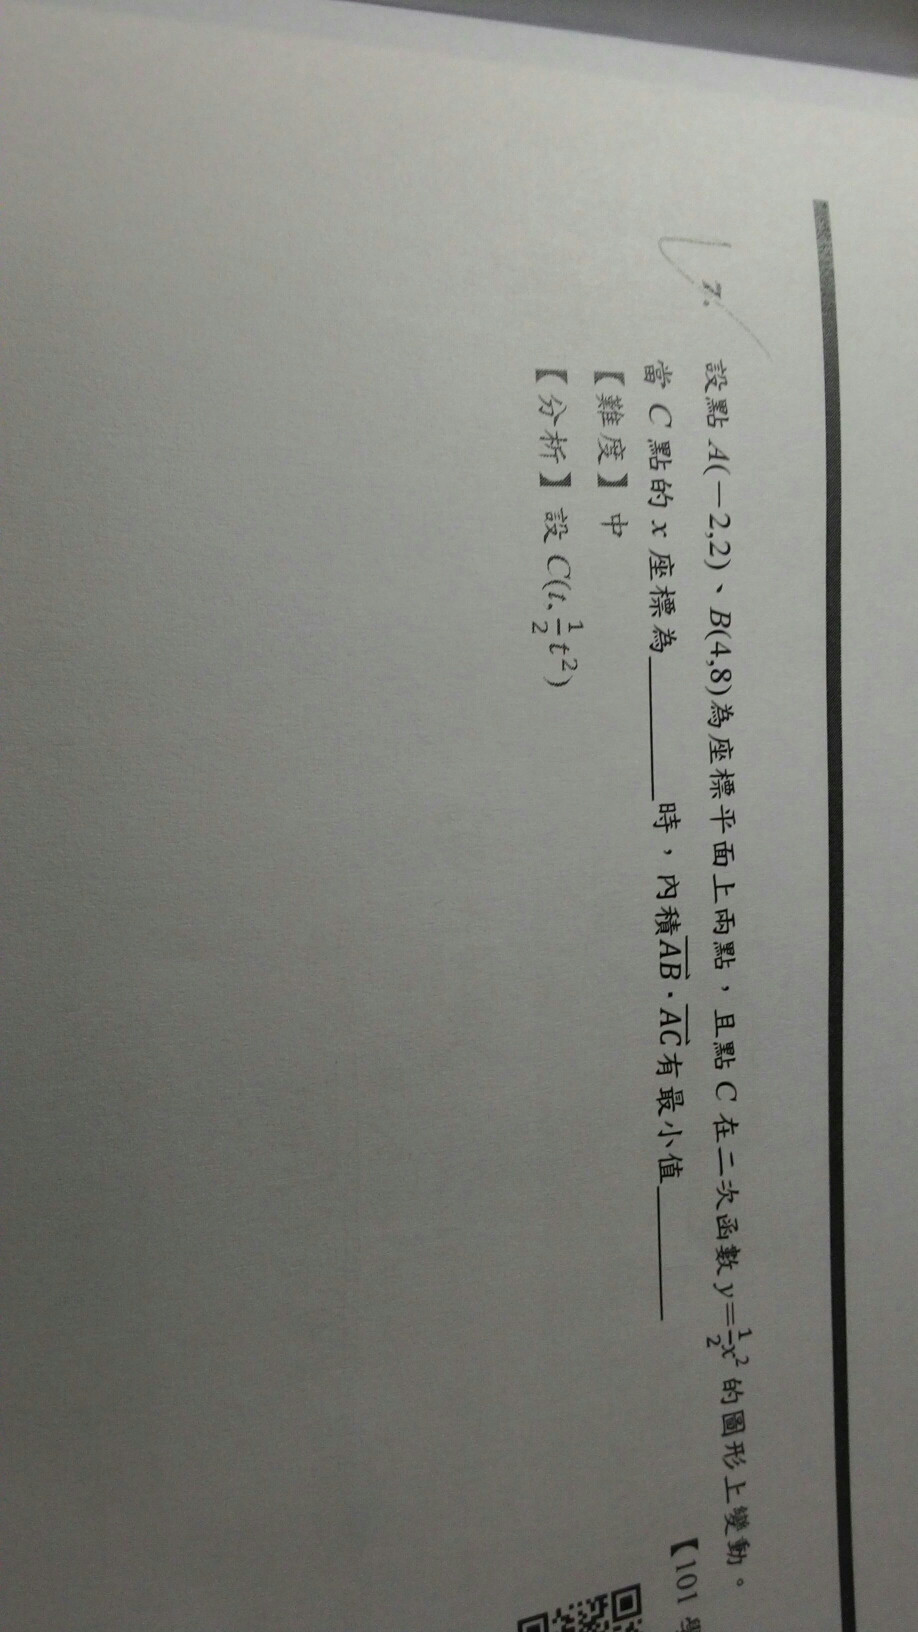 7. 設點 A(−2,2)、B(4,8)為座標平面上兩點，且點 C 在二次函數 y=1/2x²的圖形上變動。
當 C 點的 x 座標為＿＿＿＿時，內積AB·AC有最小值＿＿＿＿
【101
【難度】中
【分析】設 C(t、1/2t²)